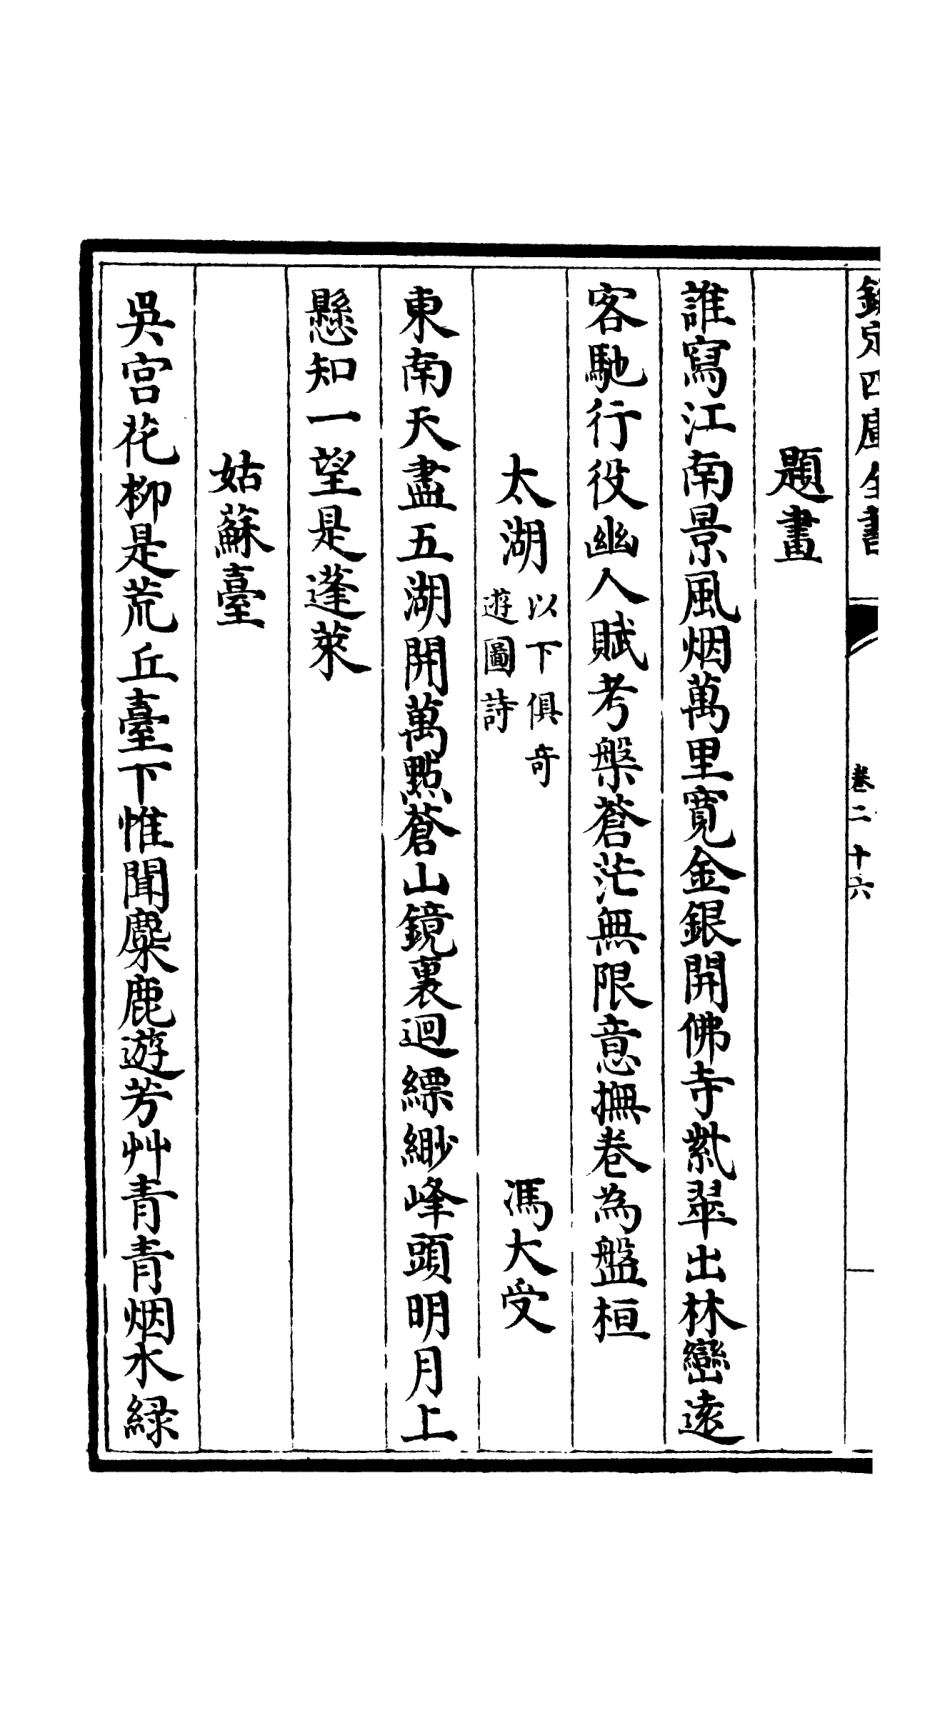 欽定四庫全書
卷二十六
題畫
誰寫江南景風烟萬里寛金銀開佛寺紫翠出林巒遠
客馳行役幽人賦考槃蒼茫無限意撫卷為盤桓
太湖以下俱奇遊圖詩 馮大受
東南天盡五湖開萬點蒼山鏡裏迴縹緲峰頭明月上
懸知一望是蓬萊
姑蘇臺
吳宮花柳是荒丘臺下惟聞麋鹿遊芳艸青青烟水緑